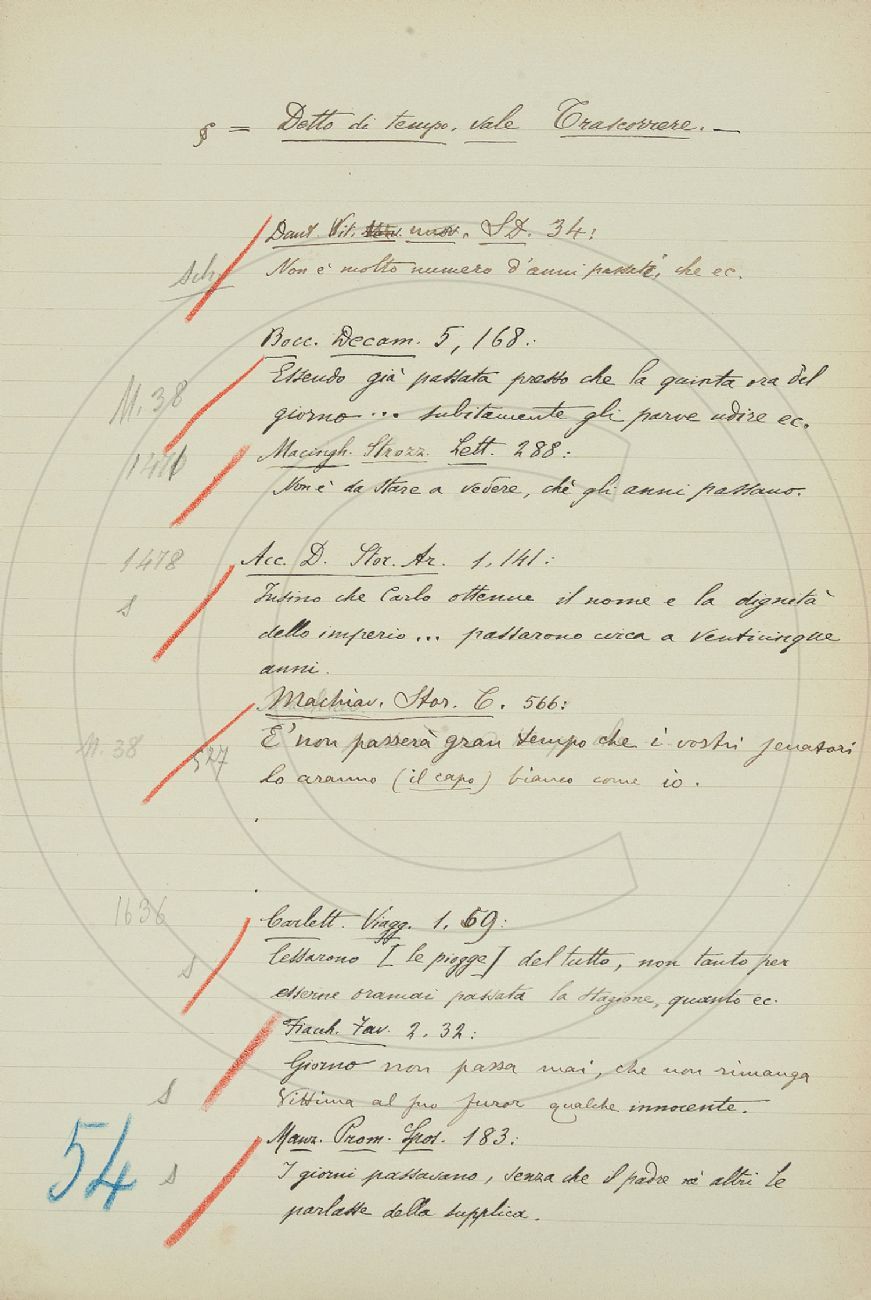 § = Detto di tempo, vale Trascorrere. —
Dant. Vit. nuov. SD. 34:
Sch.
Non è molto numero d'anni passato, che ec.
Bocc. Decam. 5, 168:
Essendo già passata presso che la quinta ora del
M. 38
giorno ... subitamente gli parve udire ec.
Macingh. Strozz. Lett. 288:
Non è da stare a vedere, chè gli anni passano.
Acc. D. Stor. Ar. 1, 141:
1478
Insino che Carlo ottenne il nome e la dignità
s
dello imperio ... passarono circa a venticinque
anni.
Machiav. Stor. C. 566:
E' non passerà gran tempo che i vostri senatori
M. 38 527
Lo aranno (il capo) bianco come io.
1636
Carlett. Viagg. 1. 69:
Cessarono [le piogge] del tutto, non tanto per
s
esserne oramai passata la stagione, quanto ec.
Fiacch. Fav. 2. 32:
Giorno non passa mai, che non rimanga
s
Vittima al suo furor qualche innocente.
Manz. Prom. Spos. 183:
54
s
I giorni passavano, senza che il padre nè altri le
parlasse della supplica.